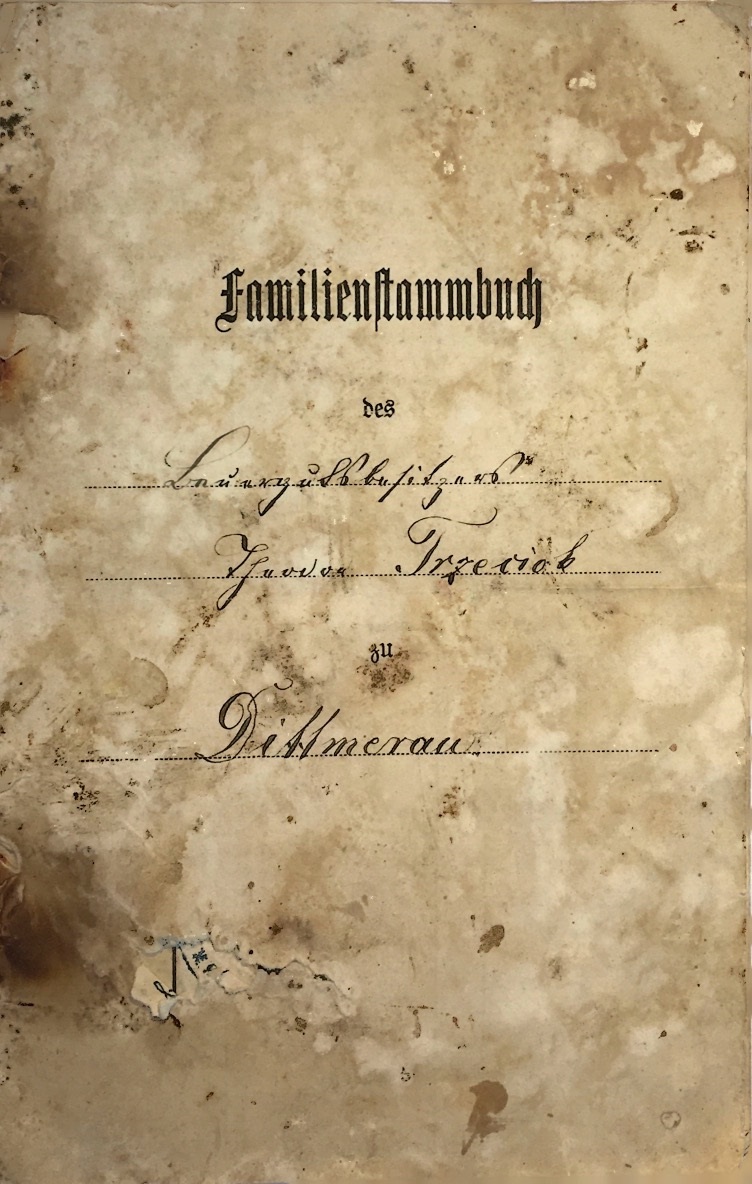 Familienstammbuch
des
Bauergutsbesitzers
Theodor Trzeciok
zu
Dittmerau.